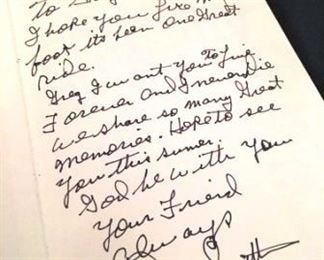 To
I hope you live
foot its been one great
ride.
Greg I want you To live
Forever and I never die
we share so many great
memories. Hope to see
you this sumer.
God be with you
your Friend
Always